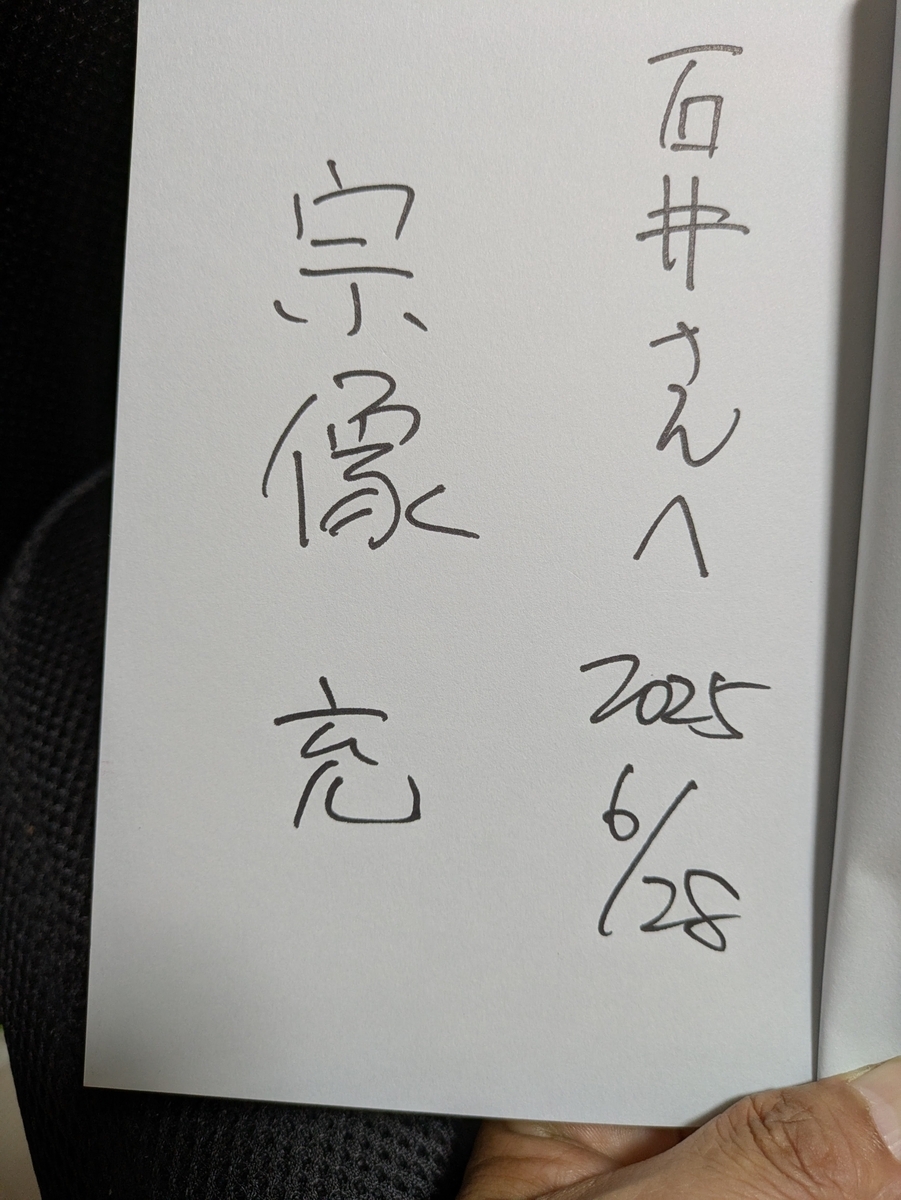 石井さんへ
2025
6/28
宗像 充